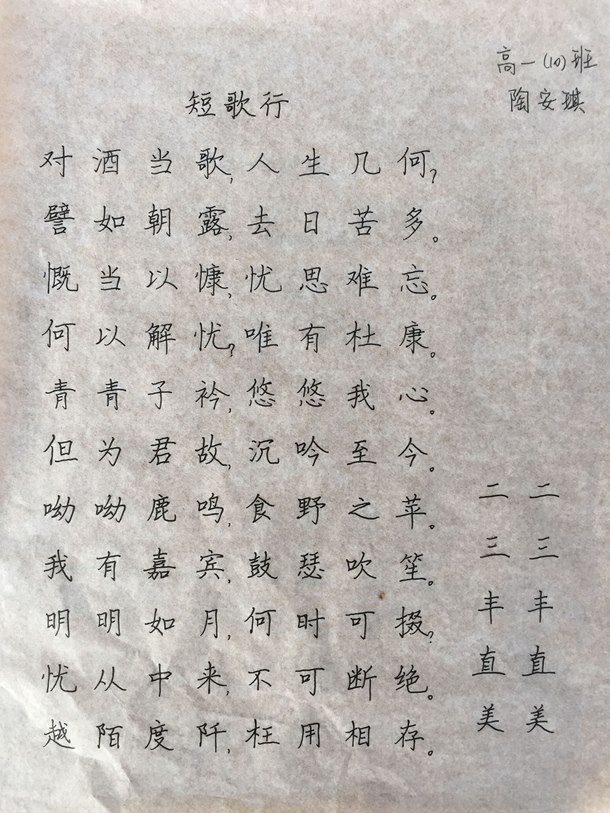 高一(10)班
陶安琪
短歌行
对酒当歌,人生几何?
譬如朝露,去日苦多。
慨当以慷,忧思难忘。
何以解忧?唯有杜康。
青青子衿,悠悠我心。
但为君故,沉吟至今。
呦呦鹿鸣,食野之苹。
我有嘉宾,鼓瑟吹笙。
明明如月,何时可掇?
忧从中来,不可断绝。
越陌度阡,枉用相存。
二三丰直美
二三丰直美